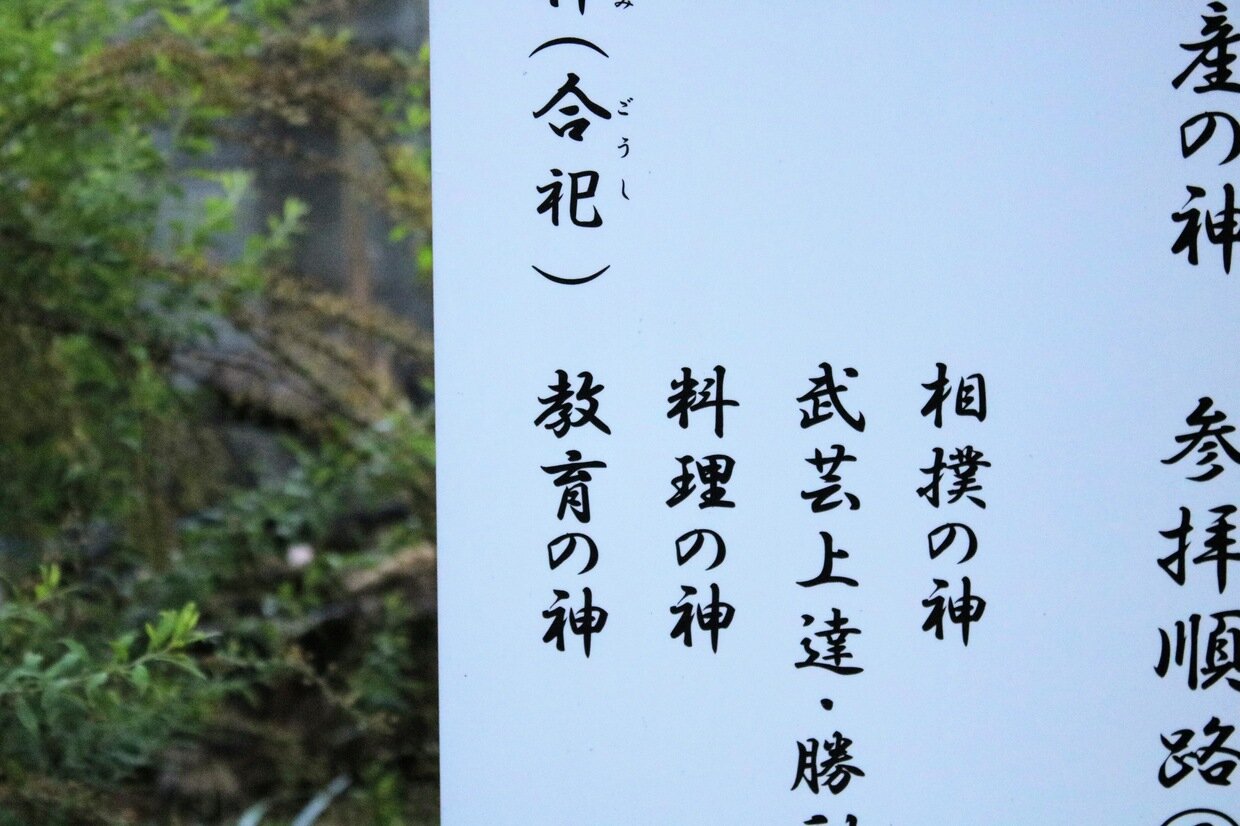 産の神 参拝順路
相撲の神
武芸上達・勝
料理の神
(合祀) 教育の神
ごうし